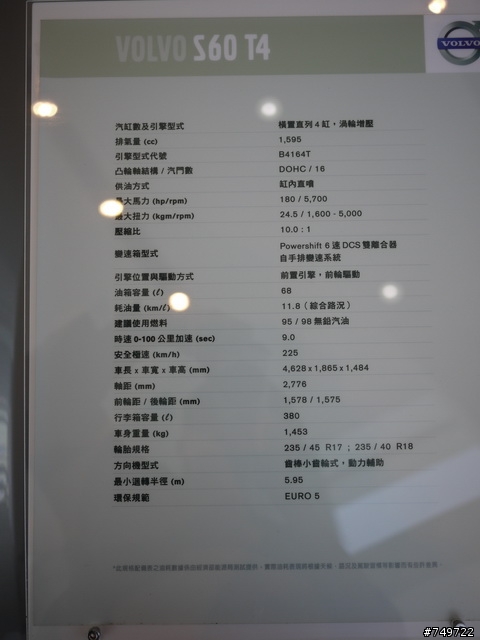 VOLVO S60 T4
VOLVO
汽缸數及引擎型式 橫置直列 4 缸，渦輪增壓
排氣量 (cc) 1,595
引擎型式代號 B4164T
凸輪軸結構 / 汽門數 DOHC / 16
供油方式 缸內直噴
最大馬力 (hp/rpm) 180 / 5,700
最大扭力 (kgm/rpm) 24.5 / 1,600 - 5,000
壓縮比 10.0 : 1
變速箱型式 Powershift 6 速 DCS 雙離合器
自手排變速系統
引擎位置與驅動方式 前置引擎，前輪驅動
油箱容量 (ℓ) 68
耗油量 (km/ℓ) 11.8（綜合路況）
建議使用燃料 95 / 98 無鉛汽油
時速 0-100 公里加速 (sec) 9.0
安全極速 (km/h) 225
車長 x 車寬 x 車高 (mm) 4,628 x 1,865 x 1,484
軸距 (mm) 2,776
前輪距 / 後輪距 (mm) 1,578 / 1,575
行李箱容量 (ℓ) 380
車身重量 (kg) 1,453
輪胎規格 235 / 45 R17 ; 235 / 40 R18
方向機型式 齒棒小齒輪式，動力輔助
最小迴轉半徑 (m) 5.95
環保規範 EURO 5
#749722